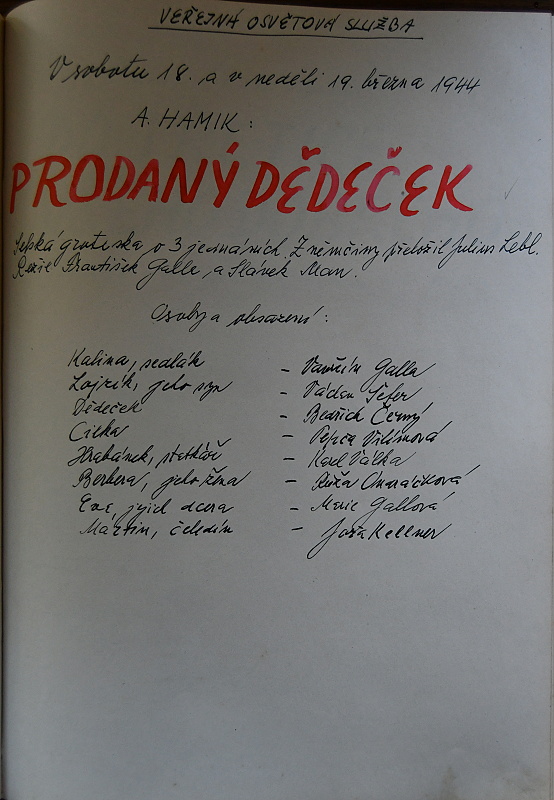 VEŘEJNÁ OSVĚTOVÁ SLUŽBA
V sobotu 18. a v neděli 19. března 1944
A. HAMIK:
PRODANÝ DĚDEČEK
Selská groteska o 3 jednáních. Z němčiny přeložil Julius Lébl.
Režie František Galle a Slávek Man.
Osoby a obsazení:
Kalina, sedlák – Vavřín Galla
Lojzík, jeho syn – Václav Šefer
Dědeček – Bedřich Černý
Cilka – Pepča Vilímová
Hrabánek, statkář – Karel Válka
Berbera, jeho žena – Růža
Eva, jejich dcera – Marie Gallová
Martin, čeledín – Joža Kellner